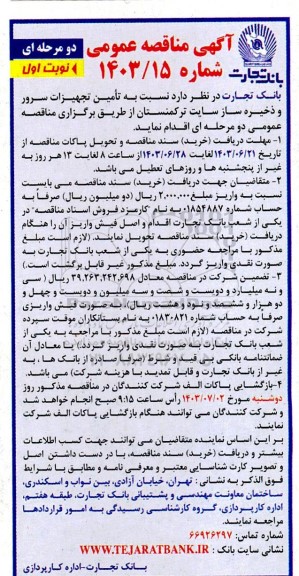 آگهی مناقصه عمومی
شماره ۱۴۰۳/۱۵
دو مرحله ای
نوبت اول
بانک تجارت
بانک تجارت در نظر دارد نسبت به تأمین تجهیزات سرور
و ذخیره ساز سایت ترکمنستان از طریق برگزاری مناقصه
عمومی دو مرحله ای اقدام نماید.
۱- مهلت دریافت (خرید) سند مناقصه و تحویل پاکات مناقصه از
تاریخ ۱۴۰۳/۰۶/۲۱ لغایت ۱۴۰۳/۰۶/۲۸ از ساعت ۸ لغایت ۱۳ هر روز به
غیر از پنجشنبه ها و روزهای تعطیل می باشد.
۲- متقاضیان جهت دریافت (خرید) سند مناقصه می بایست
نسبت به واریز مبلغ ۲.۰۰۰.۰۰۰ ریال (دو میلیون ریال) صرفاً به
حساب شماره ۱۸۵۴۸۸۷ به نام "کارمزد فروش اسناد مناقصه" در
یکی از شعب بانک تجارت اقدام و اصل فیش واریز آن را هنگام
دریافت (خرید) سند مناقصه تحویل نمایند. (لازم است مبلغ
مذکور با مراجعه حضوری به یکی از شعب بانک تجارت به
صورت نقدی واریز گردد. مبلغ مذکور غیر قابل برگشت است.)
۳- تضمین شرکت در مناقصه معادل ۳۹.۲۶۳.۲۴۲.۶۹۸ ریال (سی
و نه میلیارد و دویست و شصت و سه میلیون و دویست و چهل و
دو هزار و ششصد و نود و هشت ریال)، به صورت فیش واریزی
صرفاً به حساب شماره ۱۸۳۰۸۲۱ به نام بستانکاران موقت سپرده
شرکت در مناقصه (لازم است مبلغ مذکور با مراجعه به یکی از
شعب بانک تجارت به صورت نقدی واریز گردد) یا معادل آن
ضمانتنامه بانکی بی قید و شرط (صرفاً صادره از بانک ها، به
غیر از بانک تجارت و قابل تمدید با هزینه شرکت) می باشد.
۴- بازگشایی پاکات الف شرکت کنندگان در مناقصه مذکور روز
دوشنبه مورخ ۱۴۰۳/۰۷/۰۲ رأس ساعت ۹:۱۵ صبح انجام خواهد شد
و شرکت کنندگان می توانند هنگام بازگشایی پاکات الف شرکت
نمایند.
بر این اساس نماینده متقاضیان می توانند جهت کسب اطلاعات
بیشتر و دریافت (خرید) سند مناقصه، با در دست داشتن اصل
و تصویر کارت شناسایی معتبر و معرفی نامه و مطابق با شرایط
فوق الذکر به نشانی : تهران، خیابان آزادی، بین نواب و اسکندری،
ساختمان معاونت مهندسی و پشتیبانی بانک تجارت، طبقه هفتم،
اداره کارپردازی، گروه کارشناسی رسیدگی به امور قراردادها
مراجعه نمایند.
شماره تماس: ۶۶۹۲۶۲۹۷
نشانی سایت بانک : WWW.TEJARATBANK.IR
بانک تجارت-اداره کارپردازی